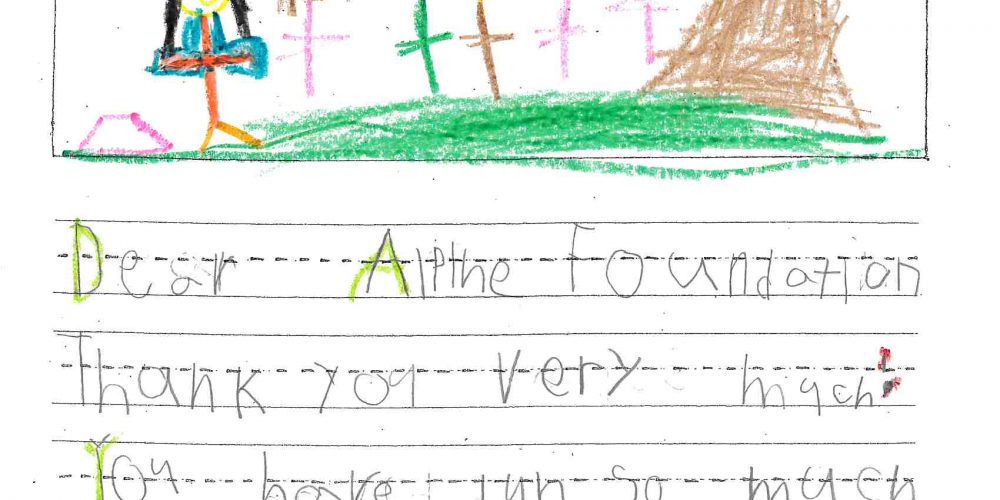 Dear Alpthe Foundation
Thank you very much!
You have so much